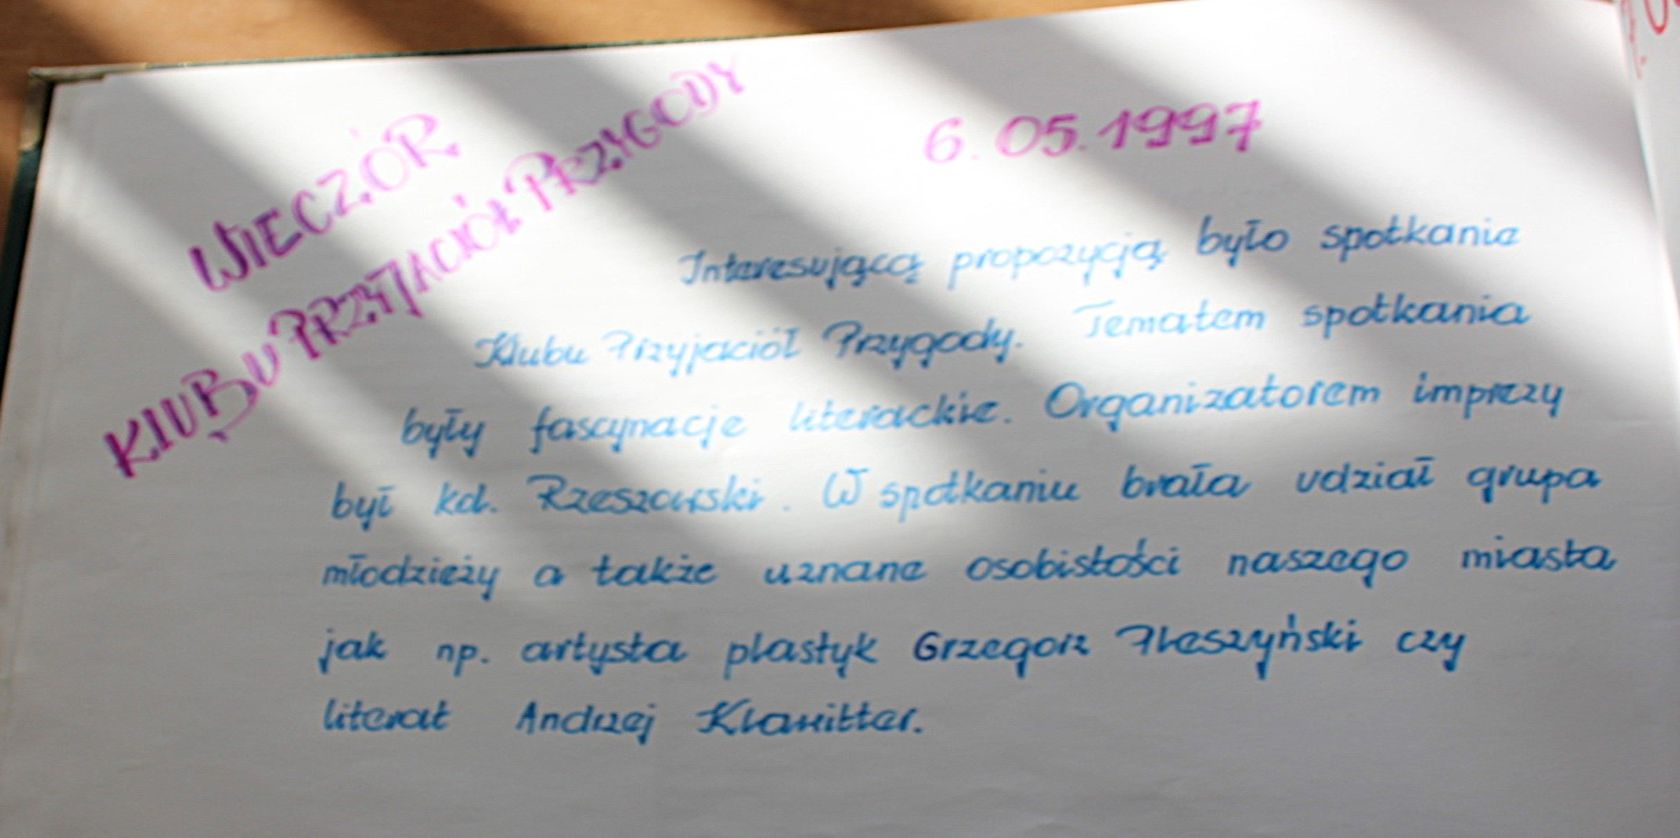 WIECZÓR
KLUBU PRZYJACIÓŁ PRZYGODY
6.05.1997
Interesującą propozycją było spotkanie
Klubu Przyjaciół Przygody. Tematem spotkania
były fascynacje literackie. Organizatorem imprezy
był kol. Rzeszowski. W spotkaniu brała udział grupa
młodzieży a także uznane osobistości naszego miasta
jak np. artysta plastyk Grzegorz czy
literat Andrzej